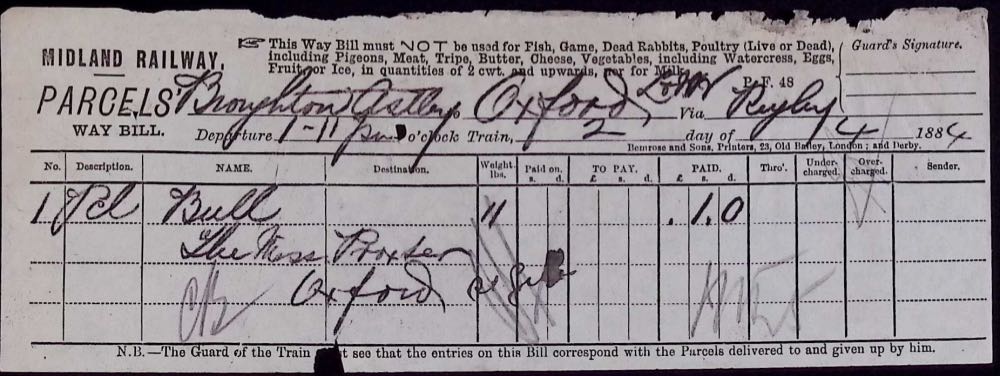 MIDLAND RAILWAY,
PARCELS'
WAY BILL.
☞ This Way Bill must NOT be used for Fish, Game, Dead Rabbits, Poultry (Live or Dead),
including Pigeons, Meat, Tripe, Butter, Cheese, Vegetables, including Watercress, Eggs,
Fruit, or Ice, in quantities of 2 cwt. and upwards, nor for Milk.
P.F. 48
Guard's Signature.
Broughton Astley to Oxford L&NW Via Rugby
Departure 1-11 pm o'clock Train, 2 day of 4 1884
Bemrose and Sons, Printers, 23, Old Bailey, London; and Derby.
No. Description. NAME. Destination. Weight. lbs. Paid on. s. d. TO PAY. £ s. d. PAID. £ s. d. Thro'. Under-charged. Over-charged. Sender.
1 Pcl Bull 11 . 1. 0
The Mess Proxter
Oxford
N.B.—The Guard of the Train must see that the entries on this Bill correspond with the Parcels delivered to and given up by him.